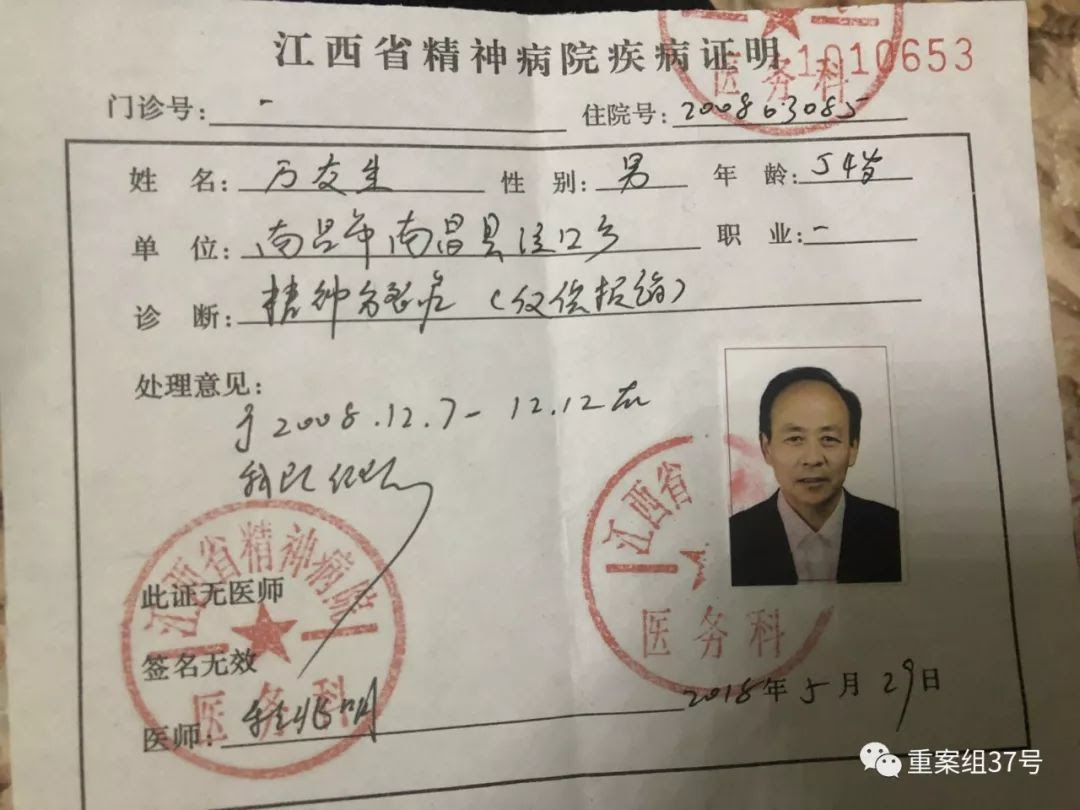 江西省精神病院疾病证明
1010653
医务科
门诊号: - 住院号: 2008063085
姓 名: 万友生 性 别: 男 年 龄: 54岁
单 位: 南昌市南昌县泾口乡 职 业: -
诊 断: 精神分裂症(仅供报销)
处理意见:
于2008.12.7-12.12在
我院住院
江西省
医务科
江西省精神病院
医务科
此证无医师
签名无效
2018年5月29日
医师:
重案组37号